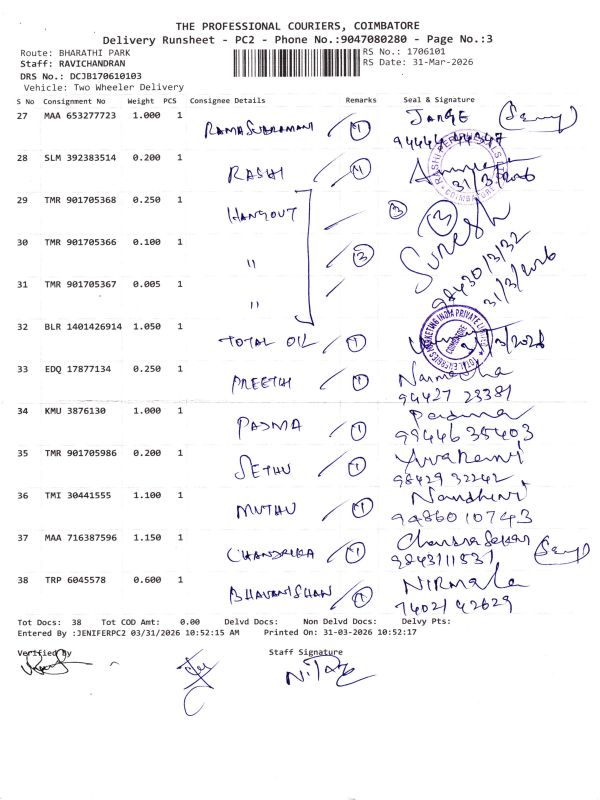 THE PROFESSIONAL COURIERS, COIMBATORE
Delivery Runsheet - PC2 - Phone No.:9047080280 - Page No.:3
Route: BHARATHI PARK
RS No.: 1706101
Staff: RAVICHANDRAN
RS Date: 31-Mar-2026
DRS No.: DCJB170610103
Vehicle: Two Wheeler Delivery
S No Consignment No Weight PCS Consignee Details Remarks Seal & Signature
27 MAA 653277723 1.000 1 RAMASUBRAMANI 1
28 SLM 392383514 0.200 1 RASHI 31/3/2026
29 TMR 901705368 0.250 1 HANGOUT 3 3
30 TMR 901705366 0.100 1 " 3 SURESH
31 TMR 901705367 0.005 1 " 98430/3/32 31/3/2026
32 BLR 1401426914 1.050 1 TOTAL OIL 1
33 EDQ 17877134 0.250 1 PREETHI 1
94427 23381
34 KMU 3876130 1.000 1 PADMA 1 Padma
99446 35403
35 TMR 901705986 0.200 1 SETHU 1
98429 32242
36 TMI 30441555 1.100 1 MUTHU 1 Nandhini
9486010743
37 MAA 716387596 1.150 1 CHANDRIKA 1 Chandrasekar
9843111531
38 TRP 6045578 0.600 1 BHAVANISHAN 1 NIRMala
74021 42629
Tot Docs: 38 Tot COD Amt: 0.00 Delvd Docs: Non Delvd Docs: Delvy Pts:
Entered By :JENIFERPC2 03/31/2026 10:52:15 AM Printed On: 31-03-2026 10:52:17
Verified By Staff Signature